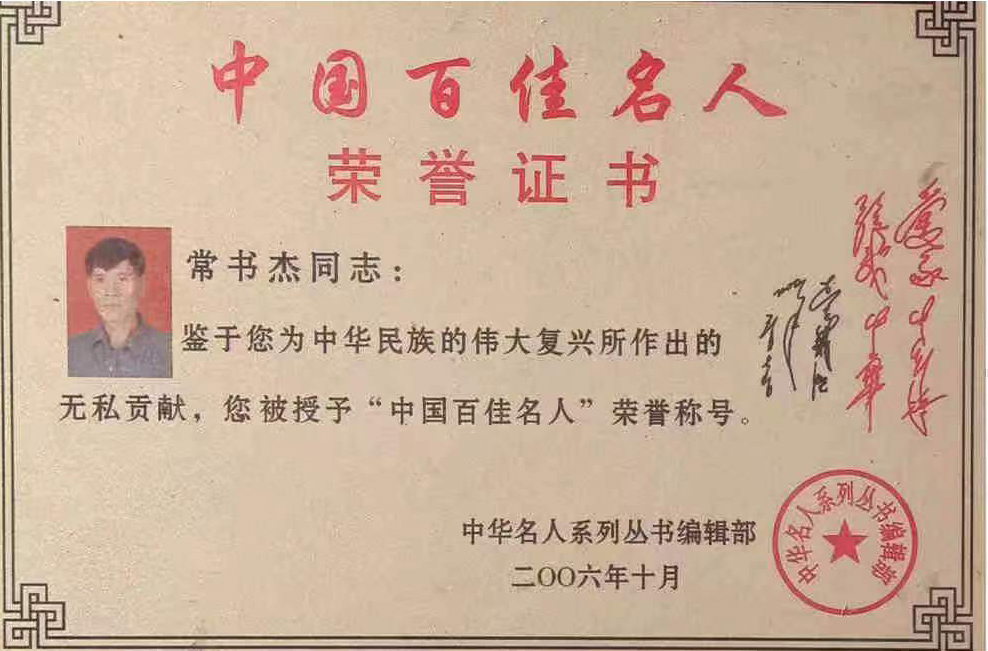 中国百佳名人
荣誉证书
常书杰同志：
鉴于您为中华民族的伟大复兴所作出的
无私贡献，您被授予“中国百佳名人”荣誉称号。
中华名人系列丛书编辑部
二〇〇六年十月
中华名人系列丛书编辑部